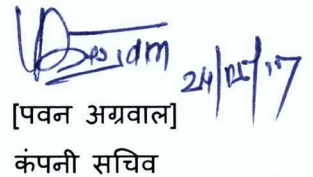 24/05/17
[पवन अग्रवाल]
कंपनी सचिव